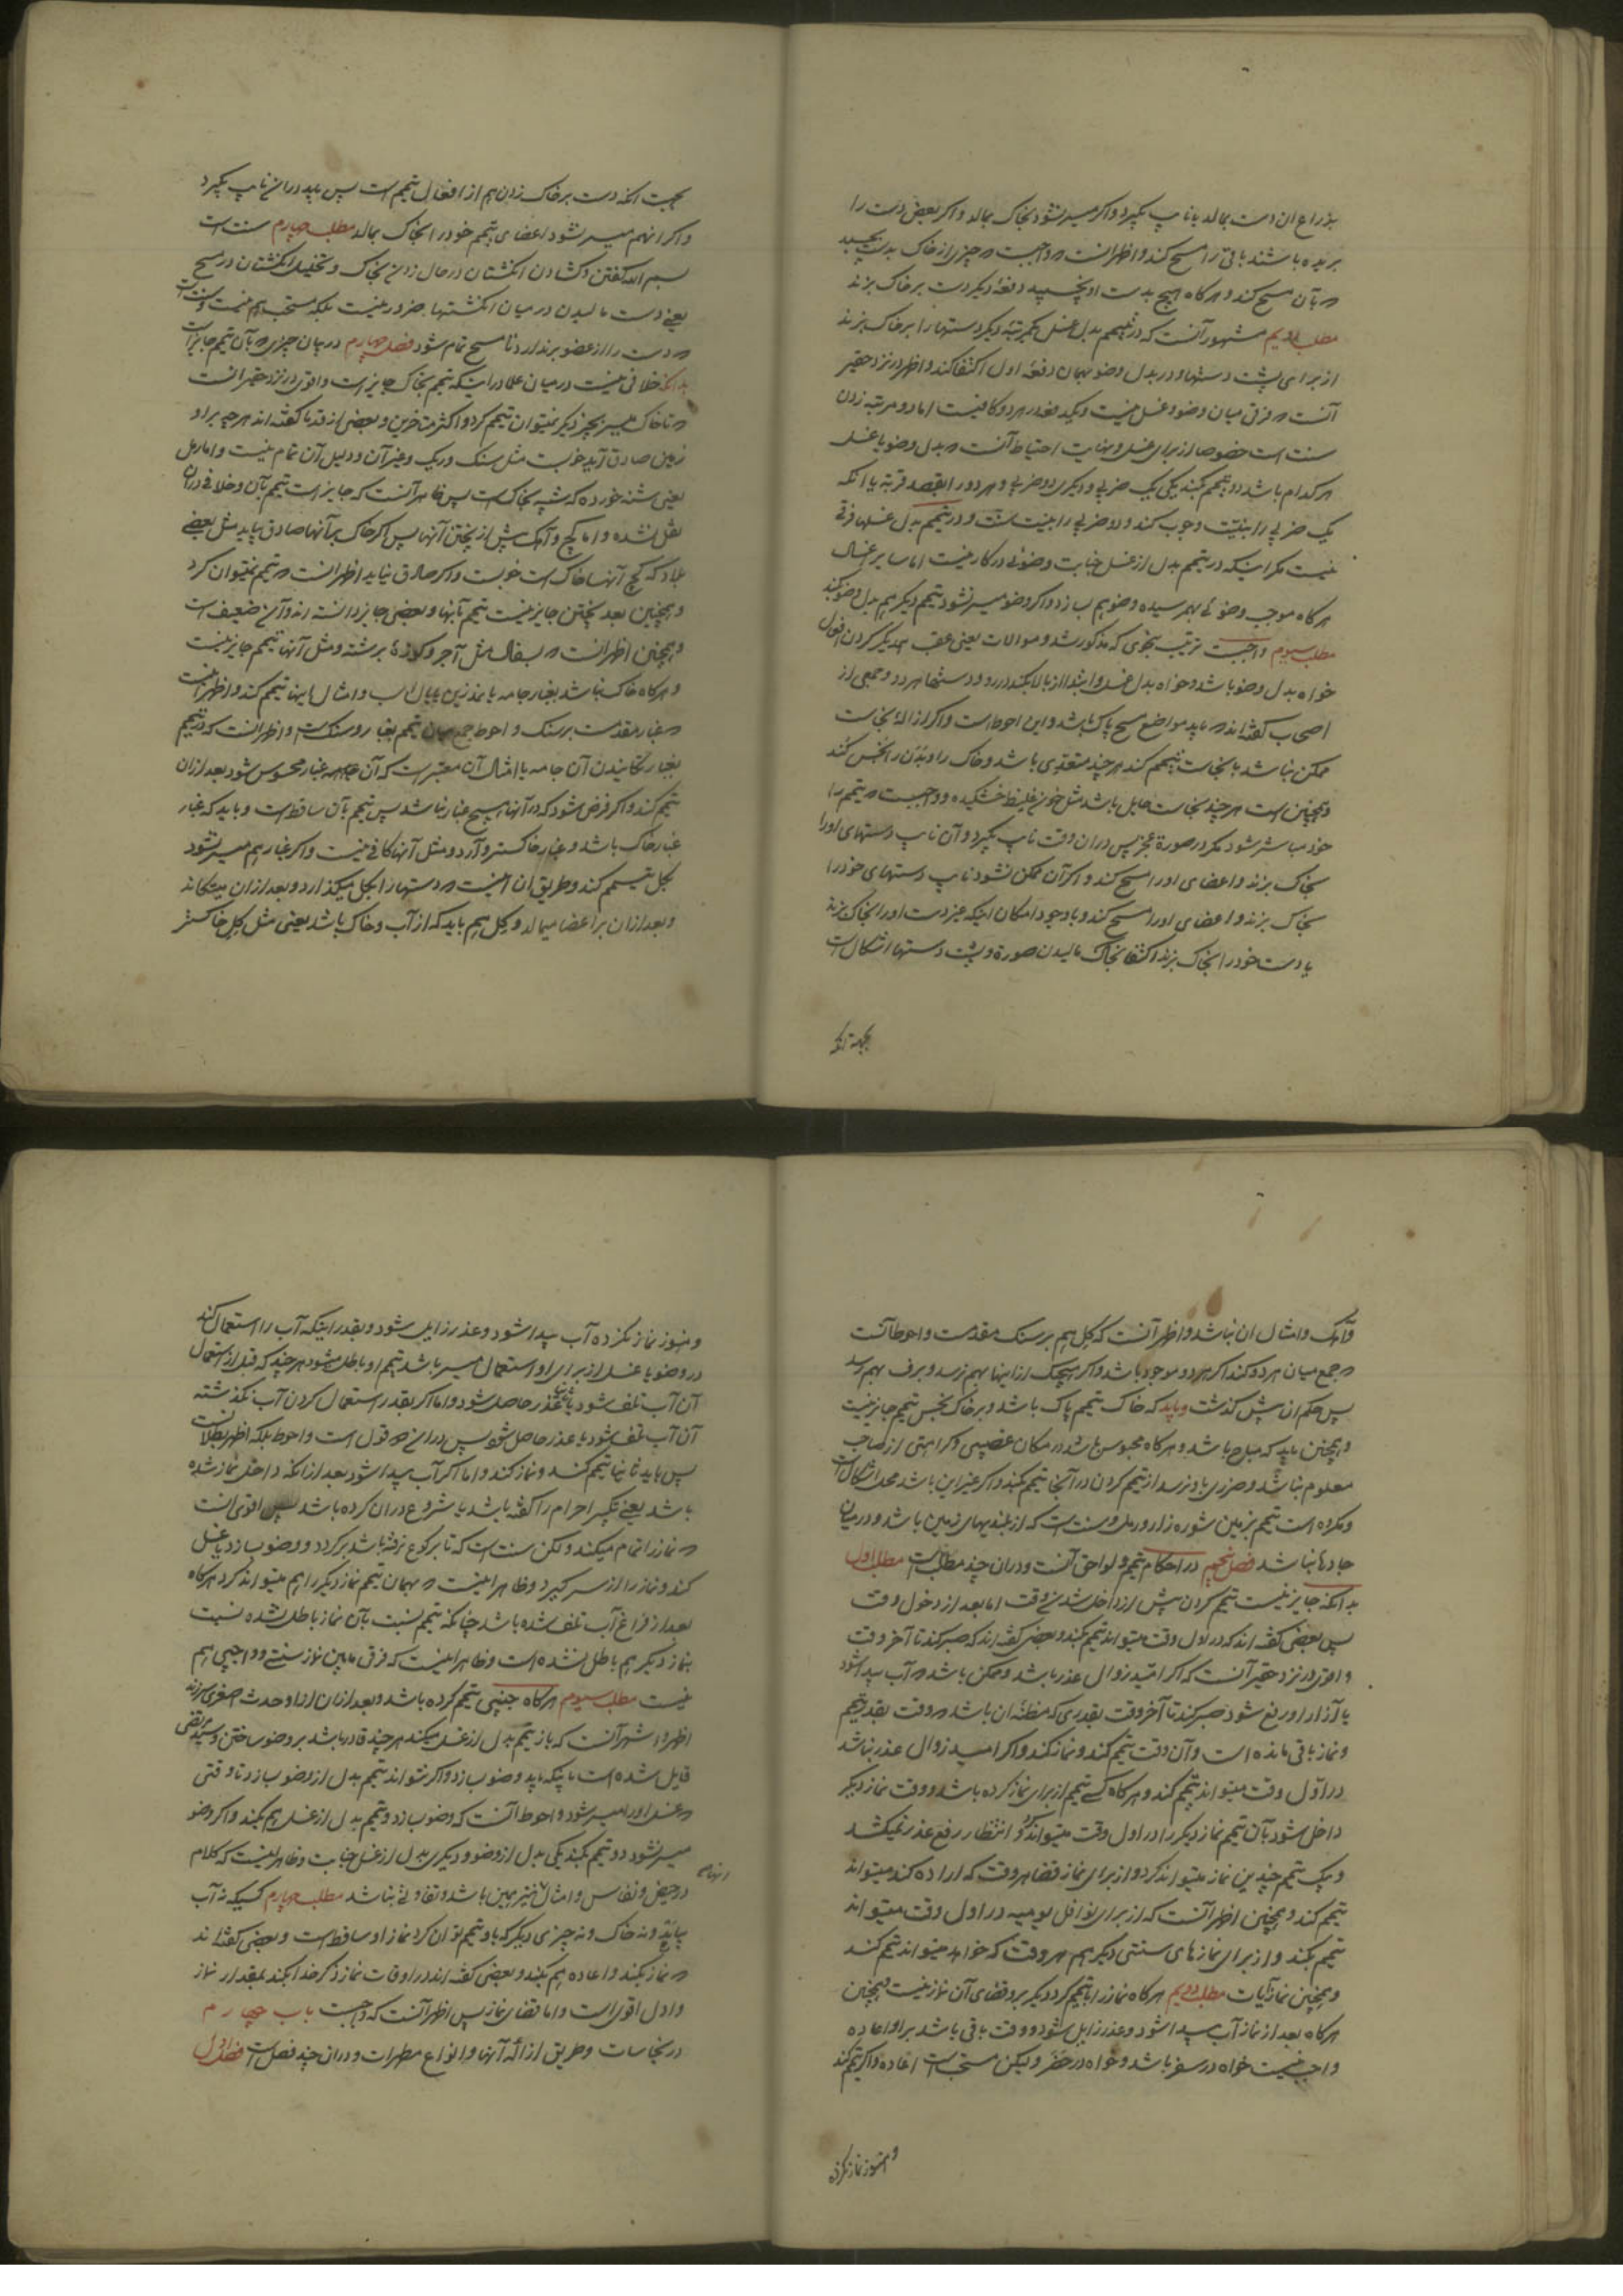 بذراع ان دست بمالد یا نایب بگیرد و اکر میسر نشود بخاک بمالد و اکر بعض دست را
بریده باشند باقی را مسح کند و اظهر انست که واجبست که چیزی از خاک بدست بچسبد
که بآن مسح کند و هر کاه هیچ بدست او نچسبد دفعه دیکر دست بر خاک بزند
مطلب دویم مشهور آنست که در تیمم بدل غسل یکمرتبه دیکر دستها را بر خاک بزند
از برای پشت دستها و در بدل وضو بهمان دفعه اول اکتفا کند و اظهر در نزد حقیر
آنست که فرقی میان وضو و غسل نیست و یکدفعه در هر دو کافیست اما دو مرتبه زدن
سنت است خصوصا از برای غسل و نهایت احتیاط آنست که بدل وضو یا غسل
هر کدام باشد دو تیمم بکند یکی یک ضربی و دیکری دو ضربی و هر دو را بقصد قربة یا انکه
یک ضربی را بنیت وجوب کند و دو ضربی را بنیت سنت و در تیمم بدل غسلها فرقی
نیست مکر اینکه در تیمم بدل از غسل جنابت وضوئی در کار نیست اما سایر اغسال
هر کاه موجب وضوئی بهمرسیده وضو هم بسازد و اکر وضو میسر نشود تیمم دیکر هم بدل وضو بکند
مطلب سیوم واجبست ترتیب بنحوی که مذکور شد و موالات یعنی عقب یکدیکر کردن افعال
خواه بدل وضو باشد و خواه بدل غسل و ابتدا از بالا بکند در رو و دستها هر دو و جمعی از
اصحاب کفته‌اند که باید مواضع مسح پاک باشد و این احوط است و اکر ازالهٔ نجاست
ممکن نباشد با نجاست تیمم کند هر چند متعدی باشد و خاک را و بدن را نجس کند
و همچنین است هر چند نجاست حایل باشد مثل خون غلیظ خشکیده و واجبست که تیمم را
خود مباشر شود مکر در صورة عجز پس در ان وقت نایب بکیرد و آن نایب دستهای او را
بخاک بزند و اعضای او را مسح کند و اکر آن ممکن نشود نایب دستهای خود را
بخاک بزند و اعضای او را مسح کند و با وجود امکان اینکه عیز دست او را بخاک بزند
یا دست خود را بخاک بزند اکتفا بخاک مالیدن صورة و پشت دستها اشکال است
بجهة انکه
بجهت انکه دست بر خاک زدن هم از افعال تیمم است پس باید در ان نایب بکیرد
و اکر انهم میسر نشود اعضای تیمم خود را بخاک بمالد مطلب چهارم سنت است
بسم الله کفتن و کشادن انکشتان در حال زدن بخاک و تخلیل انکشتان در مسح
یعنی دست مالیدن در میان انکشتها ضرور نیست بلکه مستحب هم نیست و سنت است
که دست را از عضو برندارد تا مسح تمام شود فصل چهارم در بیان چیزی که بآن تیمم جایز است
بدانکه خلافی نیست در میان علما در اینکه تیمم بخاک جایز است و اقوی در نزد حقیر انست
که تا خاک میسر بچیز دیکر نمیتوان تیمم کرد و اکثر متاخرین و بعضی از قدما کفته‌اند هر چه بر او
زمین صادق آید خوبست مثل سنک و ریک و غیر آن و دلیل آن تمام نیست و اما رمل
یعنی شنه خورده که شبیه بخاکست پس ظاهر آنست که جایز است تیمم بآن و خلافی در ان
نقل نشده و اما کچ و آهک پیش از پختن آنها پس اکر خاک بر آنها صادق بیاید مثل بعضی
بلاد که کچ آنها خاک است خوبست و اکر صادق نیاید اظهر انست که تیمم نمیتوان کرد
و همچنین بعد پختن جایز نیست تیمم بآنها و بعضی جایز دانسته‌اند و آن ضعیف است
و همچنین اظهر انست که بسفال مثل آجر و کوزهٔ برشته و مثل آنها تیمم جایز نیست
و هر کاه خاک نباشد بغبار جامه یا نمد زین یا یال اسب و امثال اینها تیمم کند و اظهر انست
که غبار مقدمست بر سنک و احوط جمع میان تیمم بغبار و سنکست و اظهر انست که در تیمم
بغبار تکانیدن آن جامه یا امثال آن معتبر است که آن غبار محسوس شود بعد از ان
تیمم کند و اکر فرض شود که در آنها هیچ غبار نباشد پس تیمم بآن ساقط است و باید که غبار
غبار خاک باشد و غبار خاکستر و آرد و مثل آنها کافی نیست و اکر غبار هم میسر نشود
بکل تیمم کند و طریق ان اینست که دستها را بکل میکذارد و بعد از ان میتکاند
و بعد از ان بر اعضا میمالد و کل هم باید که از آب و خاک باشد یعنی مثل کل خاکستر
و آهک و امثال ان نباشد و اظهر آنست که کل هم بر سنک مقدمست و احوط آنست
که جمع میان هر دو کند اکر هر دو موجود باشد و اکر هیچیک از اینها بهم نرسد و برف بهم رسد
پس حکم ان پیش کذشت و باید که خاک تیمم پاک باشد و بر خاک نجس تیمم جایز نیست
و همچنین باید که مباح باشد و هر کاه محبوس باشد در مکان غصبی و کراهتی از صاحب
معلوم نباشد و ضرری باو نرسد از تیمم کردن در آنجا تیمم بکند و اکر غیر این باشد محل اشکال است
و مکروه است تیمم بزمین شوره زار و رمل و سنت است که از بلندیهای زمین باشد و در میان
جادها نباشد فصل پنجم در احکام تیمم و لواحق آنست و در ان چند مطلب است مطلب اول
بدانکه جایز نیست تیمم کردن پیش از داخل شدن وقت اما بعد از دخول وقت
پس بعضی کفته‌اند که در اول وقت میتواند تیمم بکند و بعضی کفته‌اند که صبر کند تا آخر وقت
و اقوی در نزد حقیر آنست که اکر امید زوال عذر باشد و ممکن باشد که آب پیدا شود
یا آزار او رفع شود صبر کند تا آخر وقت بقدری که مظنه ان باشد که وقت بقدر تیمم
و نماز باقی مانده است و آن وقت تیمم کند و نماز کند و اکر امید زوال عذر نباشد
در اول وقت میتواند تیمم کند و هر کاه کسی تیمم از برای نماز کرده باشد و وقت نماز دیکر
داخل شود بآن تیمم نماز دیکر را در اول وقت میتواند کرد و انتظار رفع عذر نمیکشد
و بیک تیمم چندین نماز میتواند کرد و از برای نماز قضا هر وقت که اراده کند میتواند
تیمم کند و همچنین اظهر آنست که از برای نوافل یومیه در اول وقت میتواند
تیمم بکند و از برای نمازهای سنتی دیکر هم هر وقت که خواهد میتواند تیمم کند
و همچنین نماز آیات مطلب دویم هر کاه نماز را با تیمم کرد دیکر بر او قضای آن نماز نیست و همچنین
هر کاه بعد از نماز آب پیدا شود و عذر زایل شود و وقت باقی باشد بر او اعاده
واجب نیست خواه در سفر باشد و خواه در حضر و لیکن مستحب است اعاده و اکر تیمم کند
و هنوز نماز نکرده
و هنوز نماز نکرده آب پیدا شود و عذر زایل شود و بقدر اینکه آب را استعمال کند
در وضو یا غسل از برای او استعمال میسر باشد تیمم او باطل میشود هر چند که قبل از استعمال
آن آب تلف شود یا عذر حاصل شود و اما اکر بقدر استعمال کردن آب نکذشته
آن آب تلف شود یا عذر حاصل شود پس در ان دو قول است و احوط بلکه اظهر بطلانست
پس باید ثانیا تیمم کند و نماز کند و اما اکر آب پیدا شود بعد از انکه داخل نماز شده
باشد یعنی تکبیر احرام را کفته باشد یا شروع در ان کرده باشد پس اقوی انست
که نماز را تمام میکند و لکن سنت است که تا برکوع نرفته باشد برکردد و وضو بسازد یا غسل
کند و نماز را از سر کیرد و ظاهر اینست که بهمان تیمم نماز دیکر را هم میتواند کرد هر کاه
بعد از فراغ آب تلف شده باشد چنانکه تیمم نسبت بآن نماز باطل نشده نسبت
بنماز دیکر هم باطل نشده است و ظاهر اینست که فرق مابین نماز سنتی و واجبی هم
نیست مطلب سیوم هر کاه جنبی تیمم کرده باشد و بعد از ان از او حدث اصغری سر زند
اظهر و اشهر آنست که باز تیمم بدل از غسل میکند هر چند قادر باشد بر وضو ساختن و سید مرتضی
قایل شده است باینکه باید وضو بسازد و اکر نتواند تیمم بدل از وضو بسازد تا وقتی
که غسل او را میسر شود و احوط آنست که وضو بسازد و تیمم بدل از غسل هم بکند و اکر وضو
میسر نشود دو تیمم بکند یکی بدل از وضو و دیکری بدل از غسل جنابت و ظاهر اینست که کلام
در حیض و نفاس و امثال نیز همین باشد و تفاوتی نباشد مطلب چهارم کسیکه نه آب
بیابد و نه خاک و نه چیزی دیکر که باو تیمم توان کرد نماز او ساقط است و بعضی کفته‌اند
که نماز بکند و اعاده هم بکند و بعضی کفته‌اند در اوقات نماز ذکر خدا بکند بمقدار نماز
و اول اقوی است و اما قضای نماز پس اظهر آنست که واجبست باب چهارم
در نجاسات و طریق ازالهٔ آنها و انواع مطهرات و در ان چند فصل است فصل اول